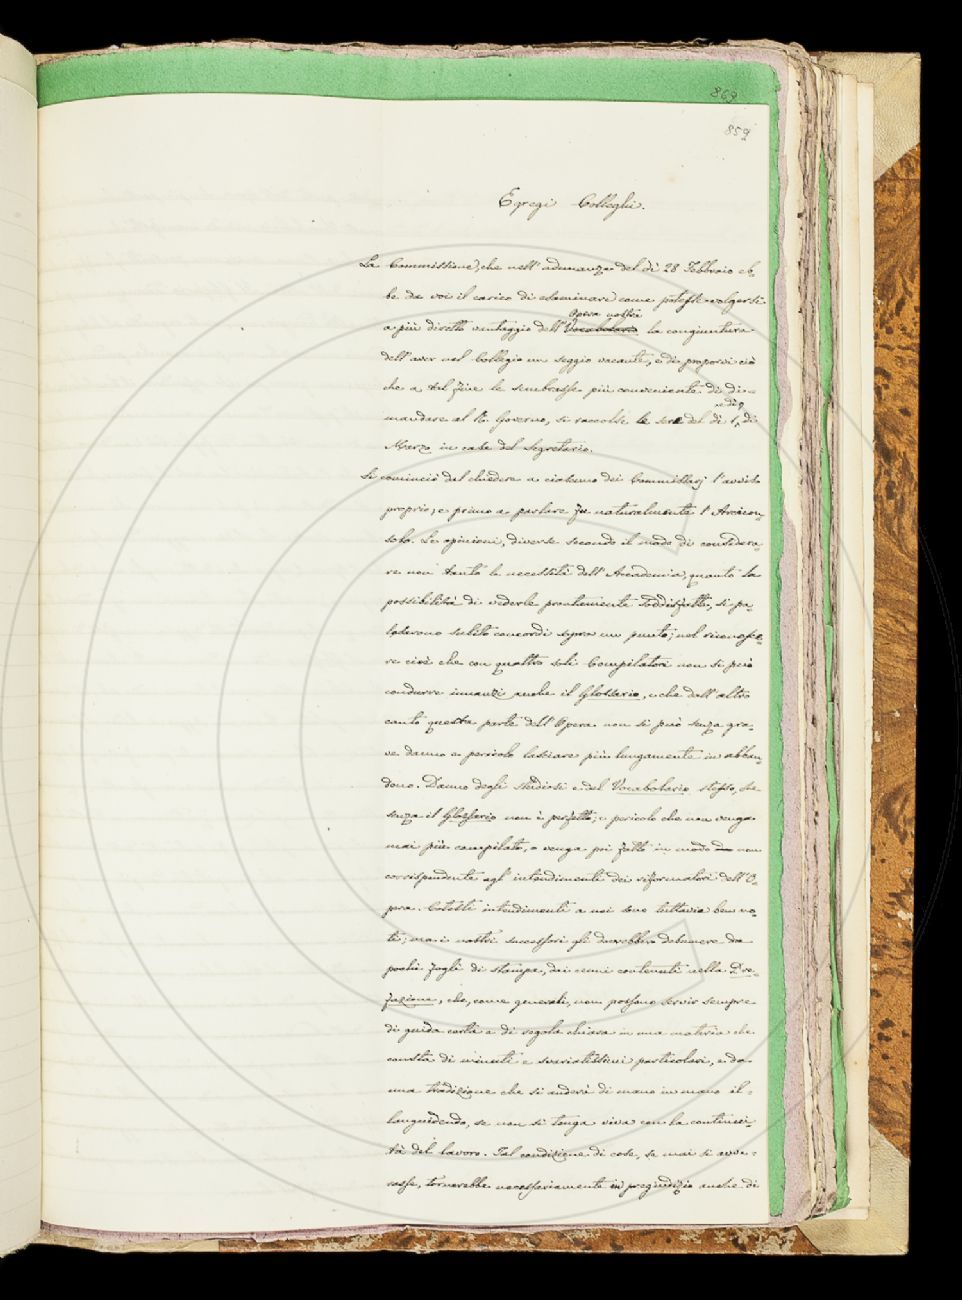 869
859
Egregi Colleghi.
La Commissione, che nell'adunanza del dì 28 Febbraio eb-
be da voi il carico di esaminare come potesse volgersi
Opera nostra
a più diretto vantaggio dell'Vocabolario la congiuntura
dell'aver nel Collegio un seggio vacante, e di proporvi ciò
che a tal fine le sembrasse più conveniente di di-
mandare al R. Governo, si raccolse le sere del dì 1, di
Marzo in casa del Segretario.
Si cominciò dal chiedere a ciascuno dei Commissarj l'avviso
proprio; e primo a parlare fu naturalmente l'Arcicon-
solo. Le opinioni, diverse secondo il modo di considera-
re non tanto le necessità dell'Accademia, quanto la
possibilità di vederle prontamente soddisfatte, si pa-
lesarono subito concordi sopra un punto; nel riconosce-
re cioè che con quattro soli Compilatori non si può
condurre innanzi anche il Glossario, e che dall'altro
canto questa parte dell'Opera non si può senza gra-
ve danno e pericolo lasciare più lungamente in abban-
dono. Danno degli studiosi e del Vocabolario stesso, che
senza il Glossario non è perfetto; e pericolo che non venga
mai più compilato, o venga poi fatto in modo non
corrispondente agl'intendimenti dei riformatori dell'O-
pera. Cotesti intendimenti a noi sono tuttavia ben no-
ti; ma i nostri successori gli dovrebbero desumere da
pochi fogli di stampa, dai cenni contenuti nella Pre-
fazione, che, come generali, non possono servir sempre
di guida certa e di regola chiara in una materia che
consta di minuti e svariatissimi particolari, e da
una tradizione che si anderà di mano in mano il-
languidendo, se non si tenga viva con la continui-
tà del lavoro. Tal condizione di cose, se mai si avve-
rasse, tornerebbe necessariamente in pregiudizio anche di